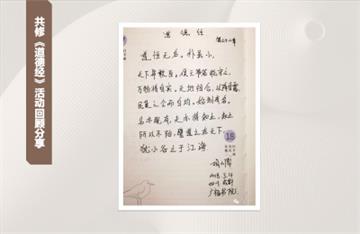 共修《道德经》活动回顾分享
道德经
第三十二章
道恒无名。朴虽小,
天下莫能臣。侯王若能守之,
万物将自宾。天地相合,以降甘露,
民莫之令而自均。始制有名,
名亦既有,夫亦将知止,知止
所以不殆。譬道之在天下,
犹川谷之于江海
18
2018.3.14
四川成都